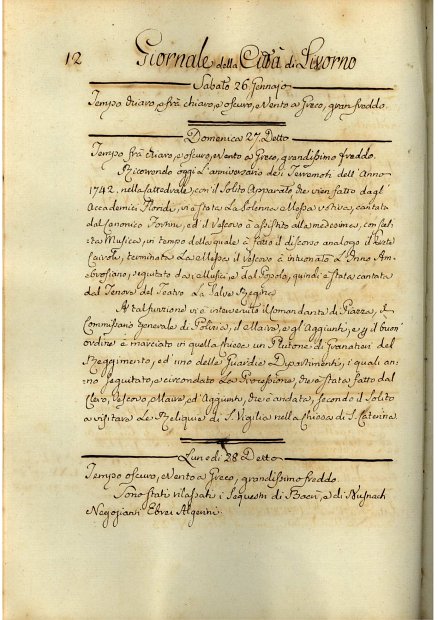 12 Giornale della Città di Livorno
Sabato 26. Gennajo
Tempo chiaro, e frà chiaro, e oscuro, e Vento a Greco, gran freddo.
Domenica 27. Detto
Tempo frà chiaro, e oscuro, e Vento a Greco, grandissimo freddo.
Ricorrendo oggi L'anniversario dei Terremoti dell'Anno
1742, nella Cattedrale, con il Solito Apparato che vien fatto dagl'
Accademici Floridi, vi è stata La Solenne Messa votiva, cantata
dal Canonico Forini, ed il Vescovo à assistito alla medesima, con scel-
ta Musica, in tempo della quale à fatto il discorso analogo il
Cairoli, terminata La Messa il Vescovo à intuonato L'Inno Am-
brosiano, seguitato dai Musici, e dal Popolo, quindi è stata cantata
dal Tenore del Teatro La Salve Regina
A tal funzione vi è intervenuto il Comandante di Piazza, il
Commissario Generale di Polizia, il Maire, e gl'Aggiunti, e p il buon'
ordine è marciato vi quella truppa un Plutone di Granatieri del
Reggimento, ed uno delle Guardie Dipartimenti, i quali an-
no seguitato, e circondato La Processione, che è stata fatta dal
Clero, Vescovo, Maire, ed Aggiunti, che è andata, secondo il Solito
a visitare Le Reliquie di S. Vigilia nella Chiesa di S. Caterina.
Lunedì 28 Detto
Tempo oscuro, e Vento a Greco, grandissimo freddo.
Sono stati rilasciati i Sequestri di Bacri, e di Busnach
Negozianti Ebrei Algerini